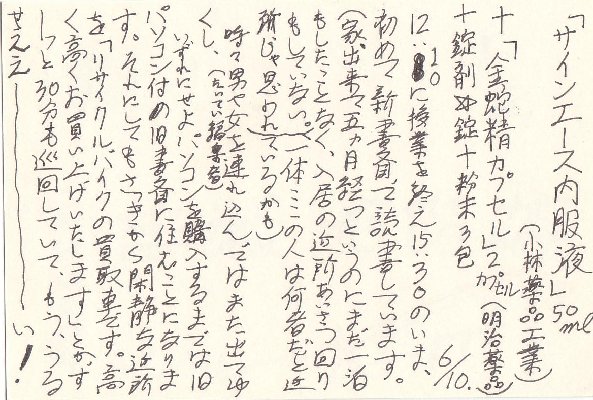 「サインエース内服液」50ml
(小林薬品工業)
+「金蛇精カプセル」2カプセル(明治薬品)
+錠剤4錠+粉末3包
6/10.
12:10に授業を終え15:30のいま、
初めて新書斎で読書しています。
(家出来て五ヵ月経つというのにまだ一泊
もしたことなく、入居の近所あいさつ回り
もしていない。一体ここの人は何者だと近
所じゃ思われているかも)
時々男や女を連れ込んではまた出てゆ
くし、(たいてい編集者)
いずれにせよパソコンを購入するまでは旧
パソコン付の旧書斎に住むことになりま
す。それにしてもさっきから閑静な近所
を「リサイクルバイクの買取車です。高
く高くお買い上げいたします」とかず
ーっと30分も巡回していて、もう、うる
せえええ―――――い!